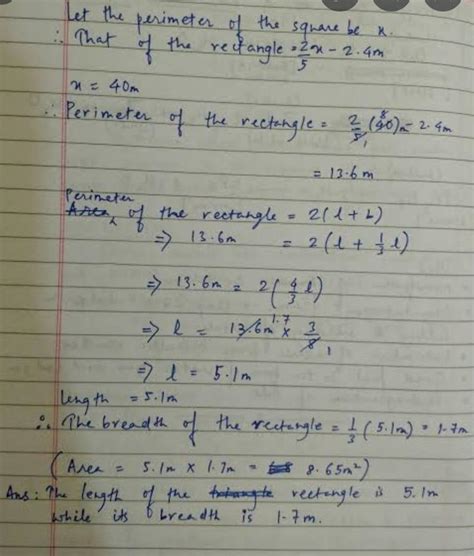 Let the perimeter of the square be x.
∴ That of the rectangle = 2/5 x - 2.4m
x = 40m
∴ Perimeter of the rectangle = 2/5 (40)m - 2.4m
8
1
= 13.6m
Perimeter
Area of the rectangle = 2(l + b)
⇒ 13.6m = 2(l + 1/3 l)
⇒ 13.6m = 2(4/3 l)
⇒ l = 13.6m × 3/8
1.7
1
⇒ l = 5.1m
length = 5.1m
∴ The breadth of the rectangle = 1/3 (5.1m) = 1.7m
(Area = 5.1m × 1.7m = 8.65m²)
Ans: The length of the rectangle is 5.1m
while its breadth is 1.7m.